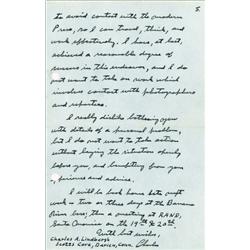 5.
to avoid contact with the modern
Press, so I can travel, think, and
work effectively. I have, at last,
achieved a reasonable degree of
success in this endeavor, and I do
not want to take on work which
involves contact with photographers
and reporters.
I really dislike bothering you
with details of a personal problem,
but I do not want to take action
without laying the situation openly
before you, and benefiting from your
, and advice.
I will be back here late next
week – two or three days at the Banana
River base; then a meeting at RAND,
Santa Monica on the 19th & 20th.
With best wishes,
Charles
Charles A. Lindbergh
Scotts Cove, Darien, Conn.